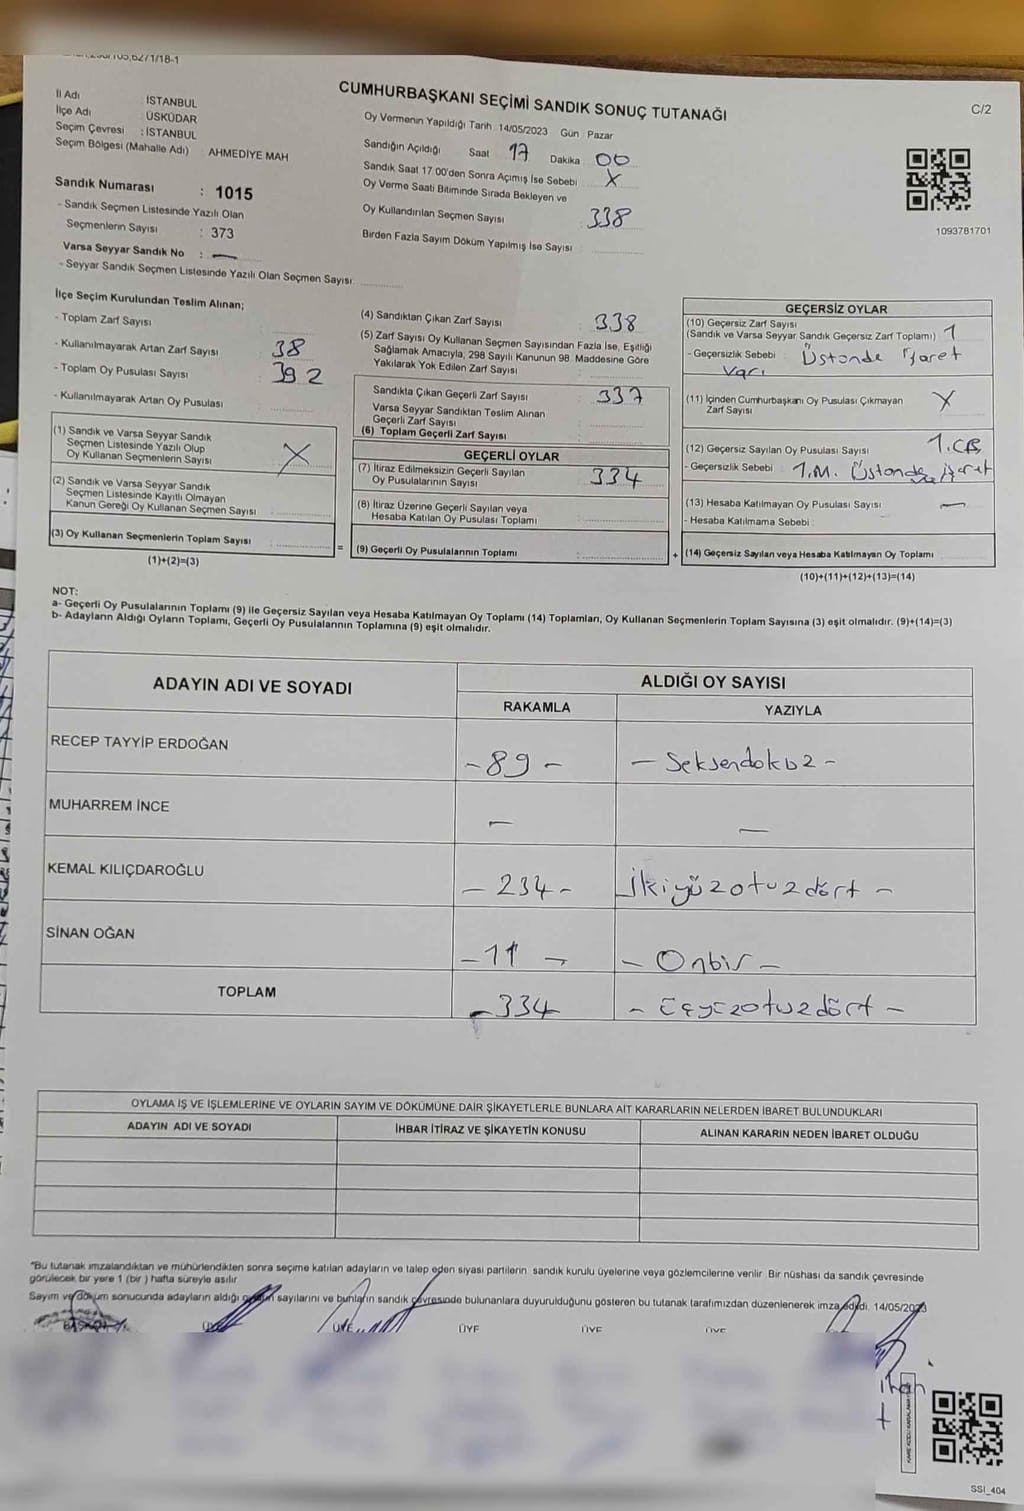 CUMHURBAŞKANI SEÇİMİ SANDIK SONUÇ TUTANAĞI
C/2
İl Adı : İSTANBUL
İlçe Adı : ÜSKÜDAR
Seçim Çevresi : İSTANBUL
Seçim Bölgesi (Mahalle Adı) AHMEDİYE MAH
Sandık Numarası : 1015
- Sandık Seçmen Listesinde Yazılı Olan
Seçmenlerin Sayısı : 373
Varsa Seyyar Sandık No : —
- Seyyar Sandık Seçmen Listesinde Yazılı Olan Seçmen Sayısı
Oy Vermenin Yapıldığı Tarih : 14/05/2023 Gün : Pazar
Sandığın Açıldığı Saat 17 Dakika 00
Sandık Saat 17:00'den Sonra Açımış İse Sebebi X
Oy Verme Saati Bitiminde Sırada Bekleyen ve
Oy Kullandırılan Seçmen Sayısı 338
Birden Fazla Sayım Döküm Yapılmış İse Sayısı
1093781701
İlçe Seçim Kurulundan Teslim Alınan;
- Toplam Zarf Sayısı
- Kullanılmayarak Artan Zarf Sayısı 38
- Toplam Oy Pusulası Sayısı 392
- Kullanılmayarak Artan Oy Pusulası
(1) Sandık ve Varsa Seyyar Sandık
Seçmen Listesinde Yazılı Olup
Oy Kullanan Seçmenlerin Sayısı X
(2) Sandık ve Varsa Seyyar Sandık
Seçmen Listesinde Kayıtlı Olmayan
Kanun Gereği Oy Kullanan Seçmen Sayısı
(3) Oy Kullanan Seçmenlerin Toplam Sayısı
(1)+(2)=(3)
(4) Sandıktan Çıkan Zarf Sayısı : 338
(5) Zarf Sayısı Oy Kullanan Seçmen Sayısından Fazla İse, Eşitliği
Sağlamak Amacıyla, 298 Sayılı Kanunun 98. Maddesine Göre
Yakılarak Yok Edilen Zarf Sayısı
Sandıkta Çıkan Geçerli Zarf Sayısı : 337
Varsa Seyyar Sandıktan Teslim Alınan
Geçerli Zarf Sayısı
(6) Toplam Geçerli Zarf Sayısı
GEÇERLİ OYLAR
(7) İtiraz Edilmeksizin Geçerli Sayılan
Oy Pusulalarının Sayısı : 334
(8) İtiraz Üzerine Geçerli Sayılan veya
Hesaba Katılan Oy Pusulası Toplamı
=
(9) Geçerli Oy Pusulalarının Toplamı
GEÇERSİZ OYLAR
(10) Geçersiz Zarf Sayısı
(Sandık ve Varsa Seyyar Sandık Geçersiz Zarf Toplamı) 1
- Geçersizlik Sebebi : Üstünde İşaret
Varı
(11) İçinden Cumhurbaşkanı Oy Pusulası Çıkmayan
Zarf Sayısı X
(12) Geçersiz Sayılan Oy Pusulası Sayısı 1.CB
- Geçersizlik Sebebi : 1.M. Üstünde işaret
(13) Hesaba Katılmayan Oy Pusulası Sayısı —
- Hesaba Katılmama Sebebi :
+
(14) Geçersiz Sayılan veya Hesaba Katılmayan Oy Toplamı
(10)+(11)+(12)+(13)=(14)
NOT:
a- Geçerli Oy Pusulalarının Toplamı (9) ile Geçersiz Sayılan veya Hesaba Katılmayan Oy Toplamı (14) Toplamları, Oy Kullanan Seçmenlerin Toplam Sayısına (3) eşit olmalıdır. (9)+(14)=(3)
b- Adayların Aldığı Oyların Toplamı, Geçerli Oy Pusulalarının Toplamına (9) eşit olmalıdır.
ADAYIN ADI VE SOYADI ALDIĞI OY SAYISI
RAKAMLA YAZIYLA
RECEP TAYYİP ERDOĞAN - 89 - - Seksendokuz -
MUHARREM İNCE - -
KEMAL KILIÇDAROĞLU - 234 - İkiyüzotuzdört -
SİNAN OĞAN - 11 - - Onbir -
TOPLAM - 334 - Üçyüzotuzdört -
OYLAMA İŞ VE İŞLEMLERİNE VE OYLARIN SAYIM VE DÖKÜMÜNE DAİR ŞİKAYETLERLE BUNLARA AİT KARARLARIN NELERDEN İBARET BULUNDUKLARI
ADAYIN ADI VE SOYADI İHBAR İTİRAZ VE ŞİKAYETİN KONUSU ALINAN KARARIN NEDEN İBARET OLDUĞU
"Bu tutanak imzalandıktan ve mühürlendikten sonra seçime katılan adayların ve talep eden siyasi partilerin sandık kurulu üyelerine veya gözlemcilerine verilir. Bir nüshası da sandık çevresinde
görülecek bir yere 1 (bir) hafta süreyle asılır
Sayım ve döküm sonucunda adayların aldığı oyların sayılarını ve bunların sandık çevresinde bulunanlara duyurulduğunu gösteren bu tutanak tarafımızdan düzenlenerek imza edildi. 14/05/2023
BAŞKAN ÜYE ÜYE ÜYE ÜYE ÜYE
SSİ_404